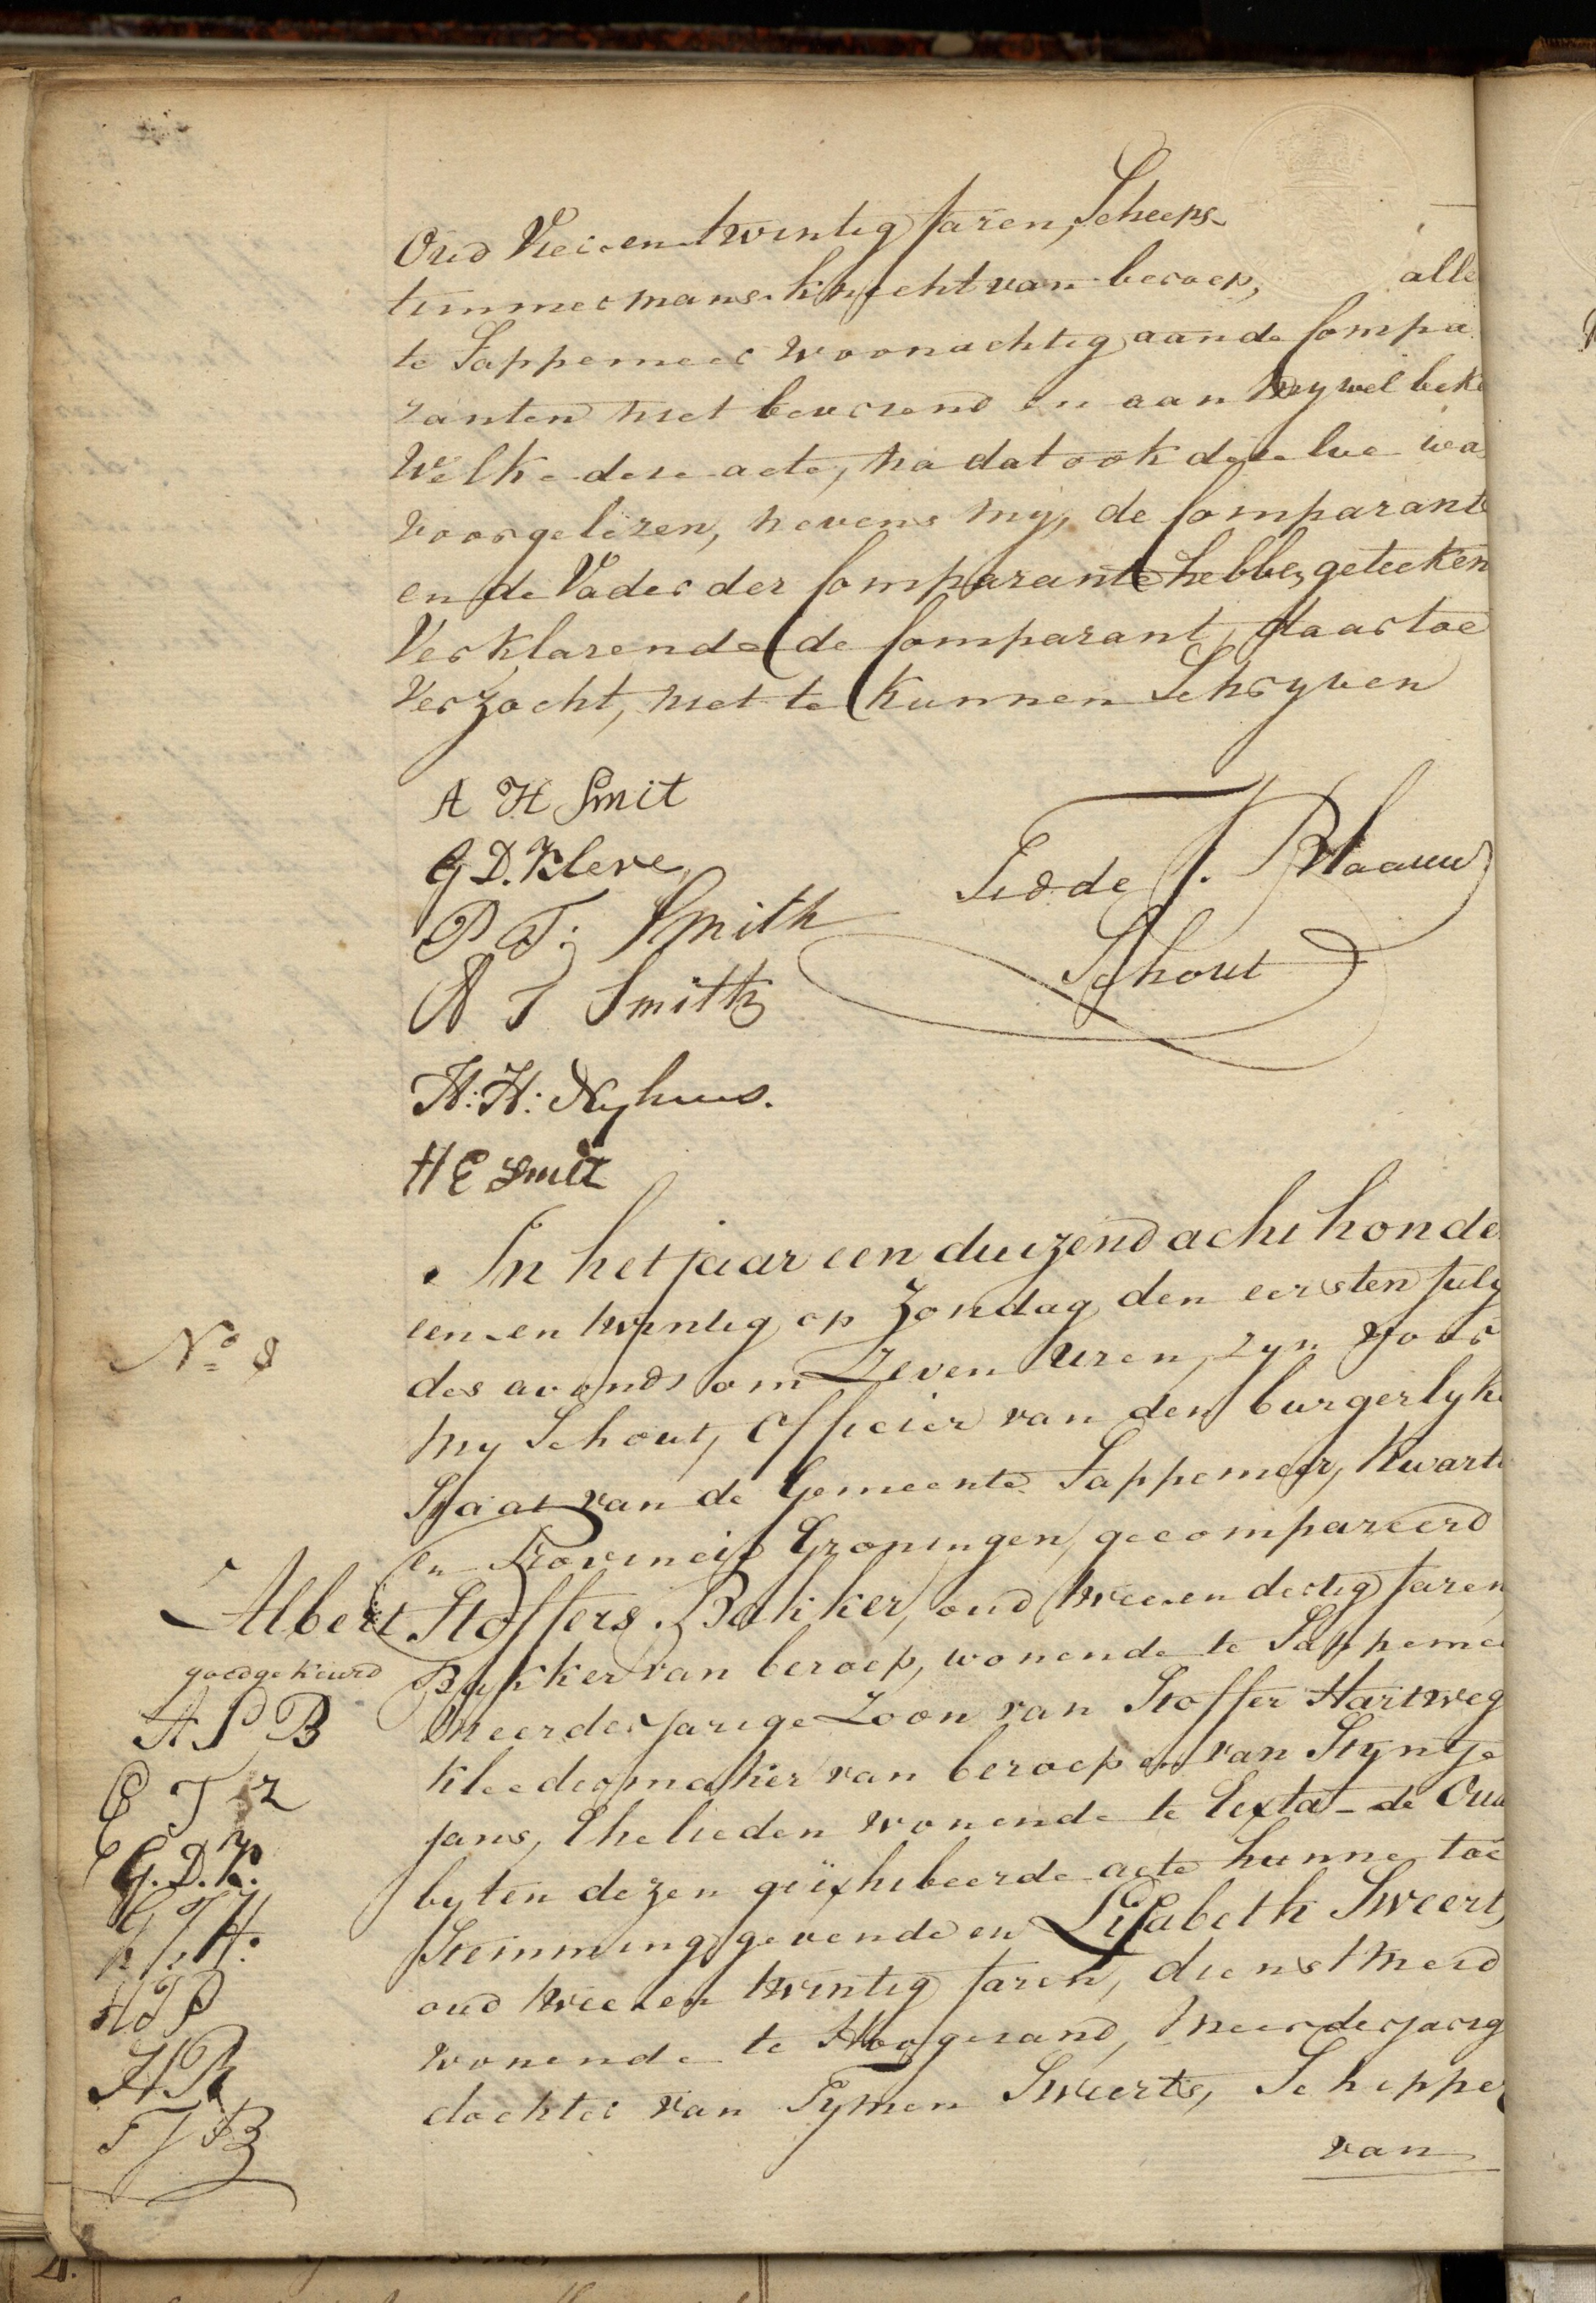 Oud Vier en twintig Jaren, Scheeps-
timmermans knecht van beroep, alle
te Sappemeer woonachtig, aan de Compa
ranten niet bevriend en aan my wel beke
Welke deze acte, na dat ook dezelve wa
voorgelezen, nevens my, de Comparante
en de Vader der Comparante hebben geteeken
Verklarende de Comparant, daartoe
verzocht, niet te kunnen Schryven
A H Smit
G D. Kleve
P T: Smith
A T Smith
H: H: Nyhuus.
H E Smit
Fedde J. Blaauw
Schout
No 8
In het jaar een duizend acht honde
een en twintig op Zondag den eersten July
des avonds om Zeven uren, zyn voor
my Schout, Officier van den burgerlyke
Staat van de Gemeente Sappemeer, Kwartie
en Provincie Groningen, gecompareerd
Albert Stoffers Bakker, oud twee en dertig Jaren
Bakker van beroep, wonende te Sappemee
meerderjarige Zoon van Stoffer Hartweg
kleedermaker van beroep en van Stijntje
Jans, Ehelieden wonende te
by ten dezen geëxhibeerde acte hunne toe
Stemming gevende en Elisabeth Sweerts,
oud twee en twintig Jaren, dienstmeid
wonende te Hoogezand, Meerderjarig
dochter van Tymen Sweerts, Schipper
van
goedgekeurd
A S B
E T Z
G. D. K.
H T P
H B
F J B